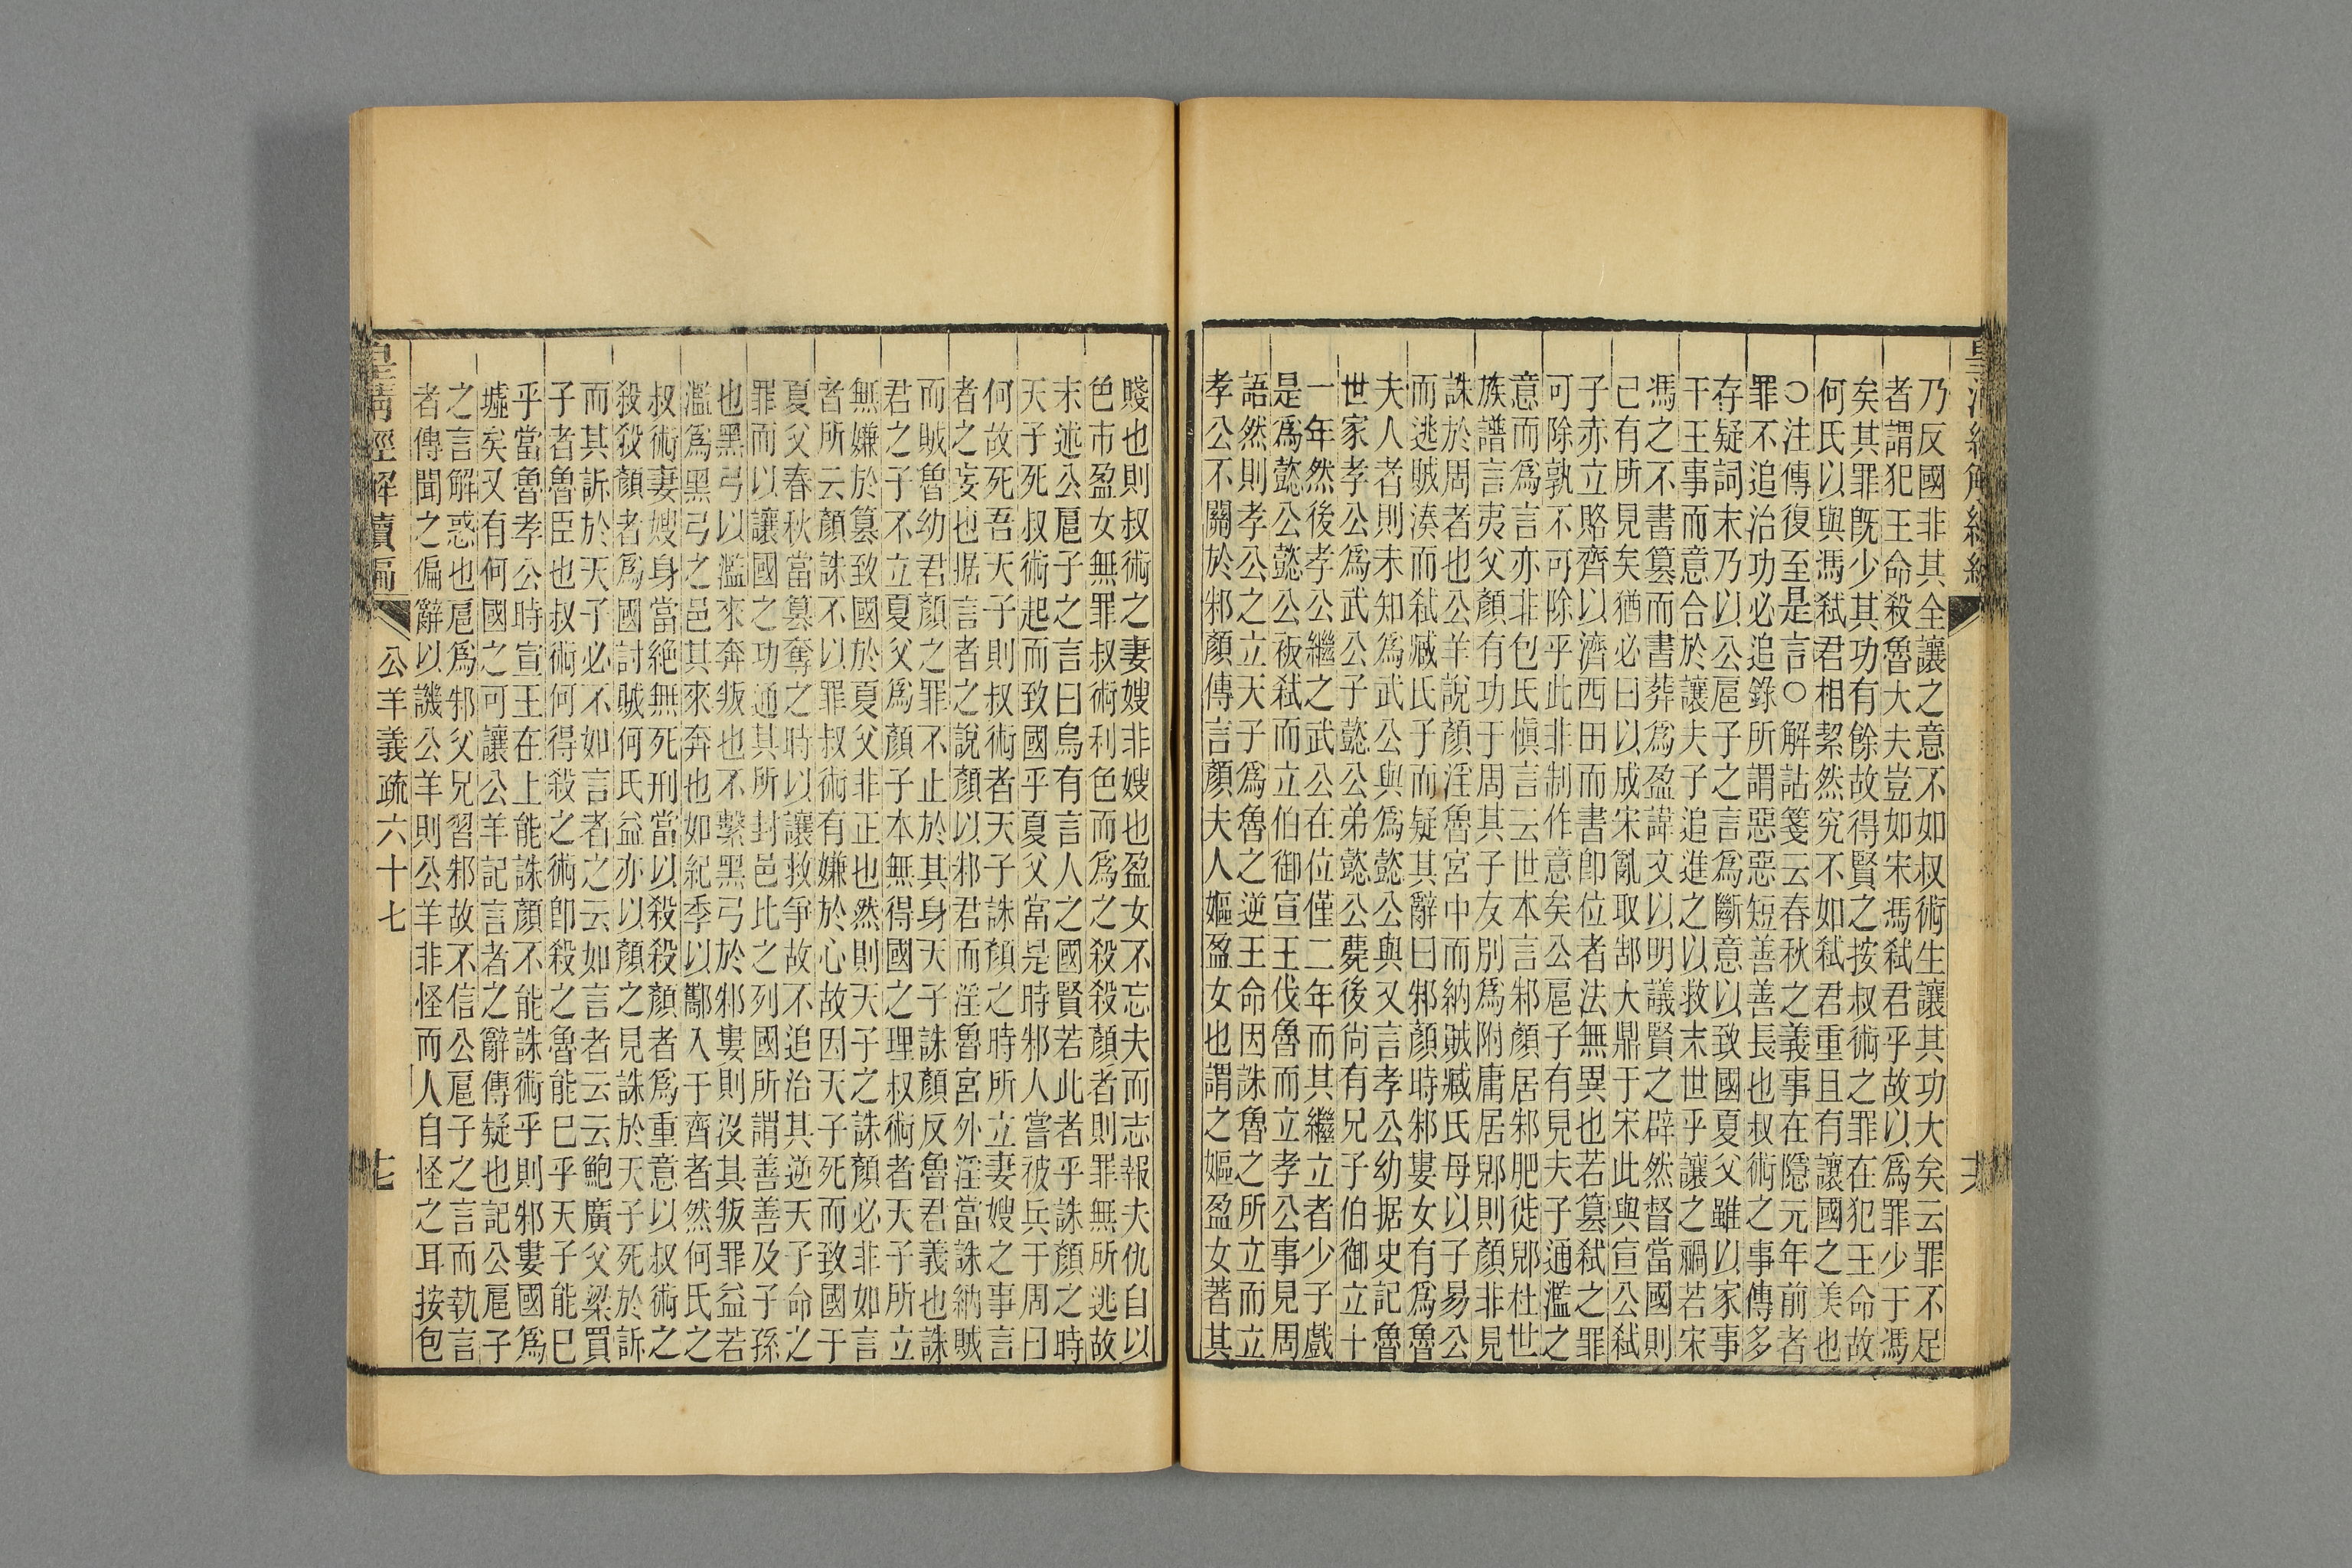 乃反國非其全讓之意不如叔術生讓其功大矣云罪不足
者謂犯王命殺魯大夫豈如宋馮弒君乎故以爲罪少于馮
矣其罪旣少其功有餘故得賢之按叔術之罪在犯王命故
何氏以與馮弒君相絜然究不如弒君重且有讓國之美也
○注傳復至是言○解詁箋云春秋之義事在隱元年前者
罪不追治功必追錄所謂惡惡短善善長也叔術之事傳多
存疑詞末乃以公扈子之言爲斷意以致國夏父雖以家事
干王事而意合於讓夫子追進之以救末世乎讓之禍若宋
馮之不書篡而書葬爲盈諱文以明議賢之辟然督當國則
己有所見矣猶必曰以成宋亂取郜大鼎于宋此與宣公弒
子赤立賂齊以濟西田而書卽位者法無異也若篡弒之罪
可除孰不可除乎此非制作意矣公扈子有見夫子通濫之
意而爲言亦非包氏愼言云世本言邾顏居邾肥徙郳杜世
族譜言夷父顏有功于周其子友別爲附庸居郳則顏非見
誅於周者也公羊說顏淫魯宮中而納賊臧氏母以子易公
而逃賊湊而弒臧氏子而疑其辭曰邾顏時邾婁女有爲魯
夫人者則未知爲武公與爲懿公與又言孝公幼据史記魯
世家孝公爲武公子懿公弟懿公薨後尙有兄子伯御立十
一年然後孝公繼之武公在位僅二年而其繼立者少子戲
是爲懿公懿公被弒而立伯御宣王伐魯而立孝公事見周
語然則孝公之立天子爲魯之逆王命因誅魯之所立而立
孝公不關於邾顏傳言顏夫人嫗盈女也謂之嫗盈女著其
賤也則叔術之妻嫂非嫂也盈女不忘夫而志報夫仇自以
色市盈女無罪叔術利色而爲之殺殺顏者則罪無所逃故
末述公扈子之言曰烏有言人之國賢若此者乎誅顏之時
天子死叔術起而致國乎夏父當是時邾人嘗被兵于周曰
何故死吾天子則叔術者天子誅顏之時所立妻嫂之事言
者之妄也据言者之說顏以邾君而淫魯宮外淫當誅納賊
而賊魯幼君顏之罪不止於其身天子誅顏反魯君義也誅
君之子不立夏父爲顏子本無得國之理叔術者天子所立
無嫌於篡致國於夏父非正也然則天子之誅顏必非如言
者所云顏誅不以罪叔術有嫌於心故因天子死而致國于
夏父春秋當篡奪之時以讓救爭故不追治其逆天子命之
罪而以讓國之功通其所封邑比之列國所謂善善及子孫
也黑弓以濫來奔叛也不繫黑弓於邾婁則沒其叛罪益若
濫爲黑弓之邑其來奔也如紀季以酅入于齊者然何氏之
叔術妻嫂身當絕無死刑當以殺殺顏者爲重意以叔術之
殺殺顏者爲國討賊何氏益亦以顏之見誅於天子死於訴
而其訴於天子必不如言者之云如言者云云鮑廣父梁買
子者魯臣也叔術何得殺之術卽殺之魯能已乎天子能已
乎當魯孝公時宣王在上能誅顏不能誅術乎則邾婁國爲
墟矣又有何國之可讓公羊記言者之辭傳疑也記公扈子
之言解惑也扈爲邾父兄習邾故不信公扈子之言而執言
者傳聞之偏辭以譏公羊則公羊非怪而人自怪之耳按包
皇淸經解續編
公羊義疏六十七